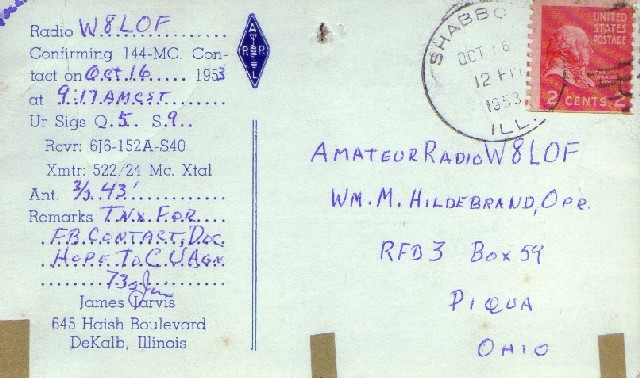 Radio W8LOF
Confirming 144-MC. Con-
tact on Oct.16..... 1953
at 9:17 AM CST
Ur Sigs Q.5.. S.9..
Rcvr: 6J6-152A-S40
Xmtr: 522/24 Mc. Xtal
Ant. 3/3 43'
Remarks TNX FOR
F.B. CONTACT, DOC.
HOPE TO C U AGN.
73
James Jarvis
645 Haish Boulevard
DeKalb, Illinois
A
R R
L
SHABBO
OCT 16
12 PM
1953
ILL.
UNITED
STATES
POSTAGE
2 CENTS 2
AMATEUR RADIO W8LOF
WM. M. HILDEBRAND, OPR.
RFD 3 BOX 59
PIQUA
OHIO